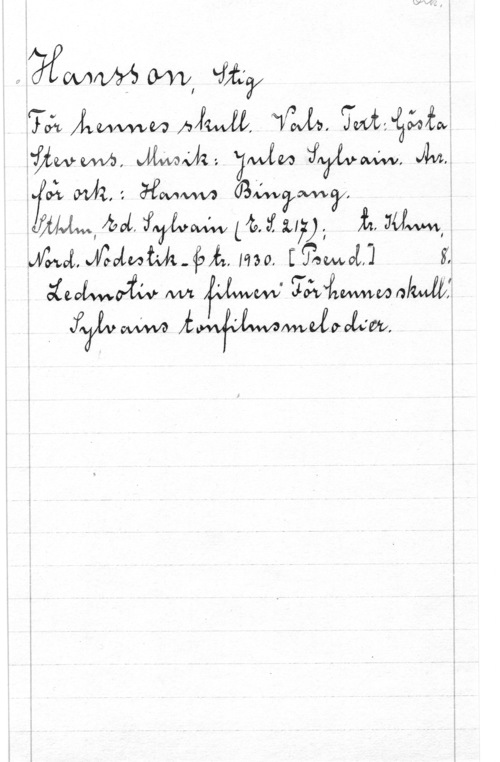 Ork.
Hansson, Stig
För hennes skull. Vals. Text: Gösta
Stevens. Musik: Jules Sylvain. Arr.
för ork.: Hanns Bingang.
Sthlm, Ed. Sylvain (E.S. 217); tr. Khvn,
Nord. Nodestik- & tr. 1930. [Pseud.] 8.
Ledmotiv ur filmen "För hennes skull."
Sylvains tonfilmsmelodier.